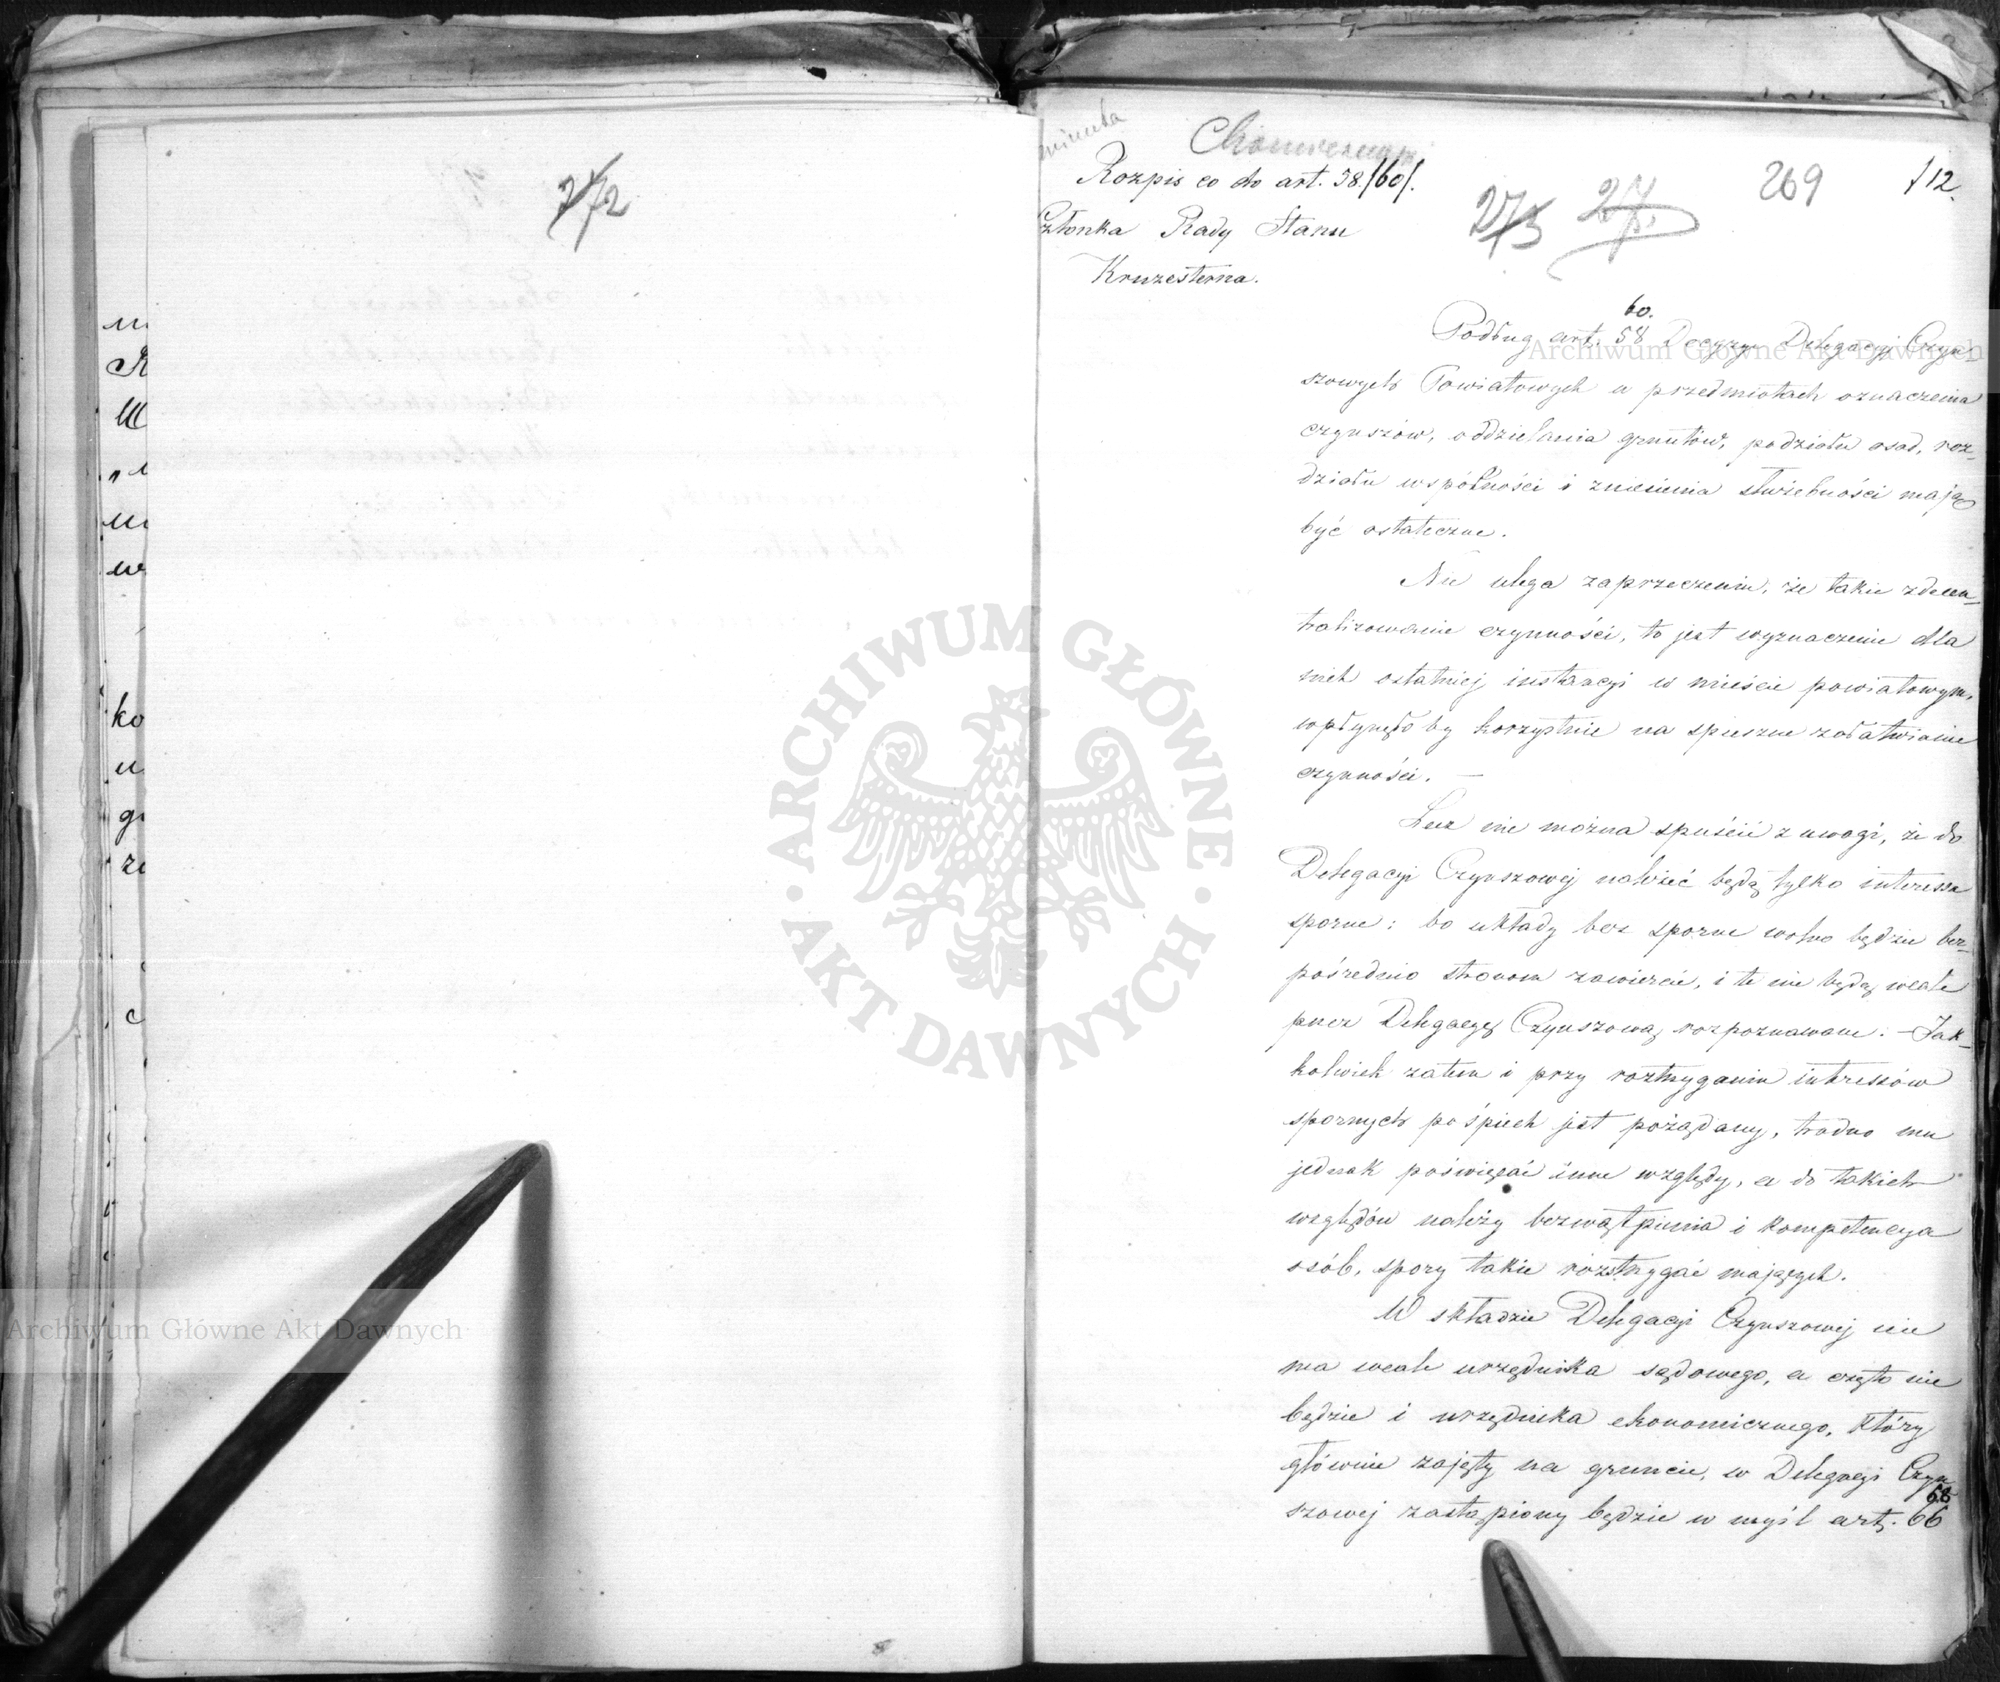 272
minuta
Rozpis co do art. 58./60/.
Członka Rady Stanu
Kruzesterna.
273
269
112.
60.
Podług art. 58 Decyzye Delegacyj Czyn-
szowych Powiatowych w przedmiotach oznaczenia
czynszów, oddzielania gruntów, podziału osad, roz-
działu wspólności i zniesienia służebności mają
być ostateczne.
Nie ulega zaprzeczeniu, że takie zdecen-
tralizowanie czynności, to jest wyznaczenie dla
nich ostatniej instancyi w mieście powiatowym,
wpłynęłoby korzystnie na spieszne załatwianie
czynności. —
Lecz nie można spuścić z uwagi, że do
Delegacyi Czynszowej należeć będą tylko interessa
sporne; bo układy bez sporne wolno będzie bez-
pośrednio stronom zawierać, i te nie będą wcale
przez Delegacyę Czynszową rozpoznawane. — Jak-
kolwiek zatem i przy roztrzyganiu interessów
spornych pośpiech jest pożądany, trudno mu
jednak poświęcać inne względy, a do takich
względów należy bezwątpienia i kompetencya
osób, spory takie rozstrzygać mających.
W składzie Delegacyi Czynszowej nie
ma wcale urzędnika sądowego, a często nie
będzie i urzędnika ekonomicznego, który
głównie zajęty na gruncie, w Delegacyi Czyn-
68
szowej zastąpiony będzie w myśl art. 66
m
ko
u
ARCHIWUM GŁÓWNE AKT DAWNYCH
Archiwum Główne Akt Dawnych
Archiwum Główne Akt Dawnych